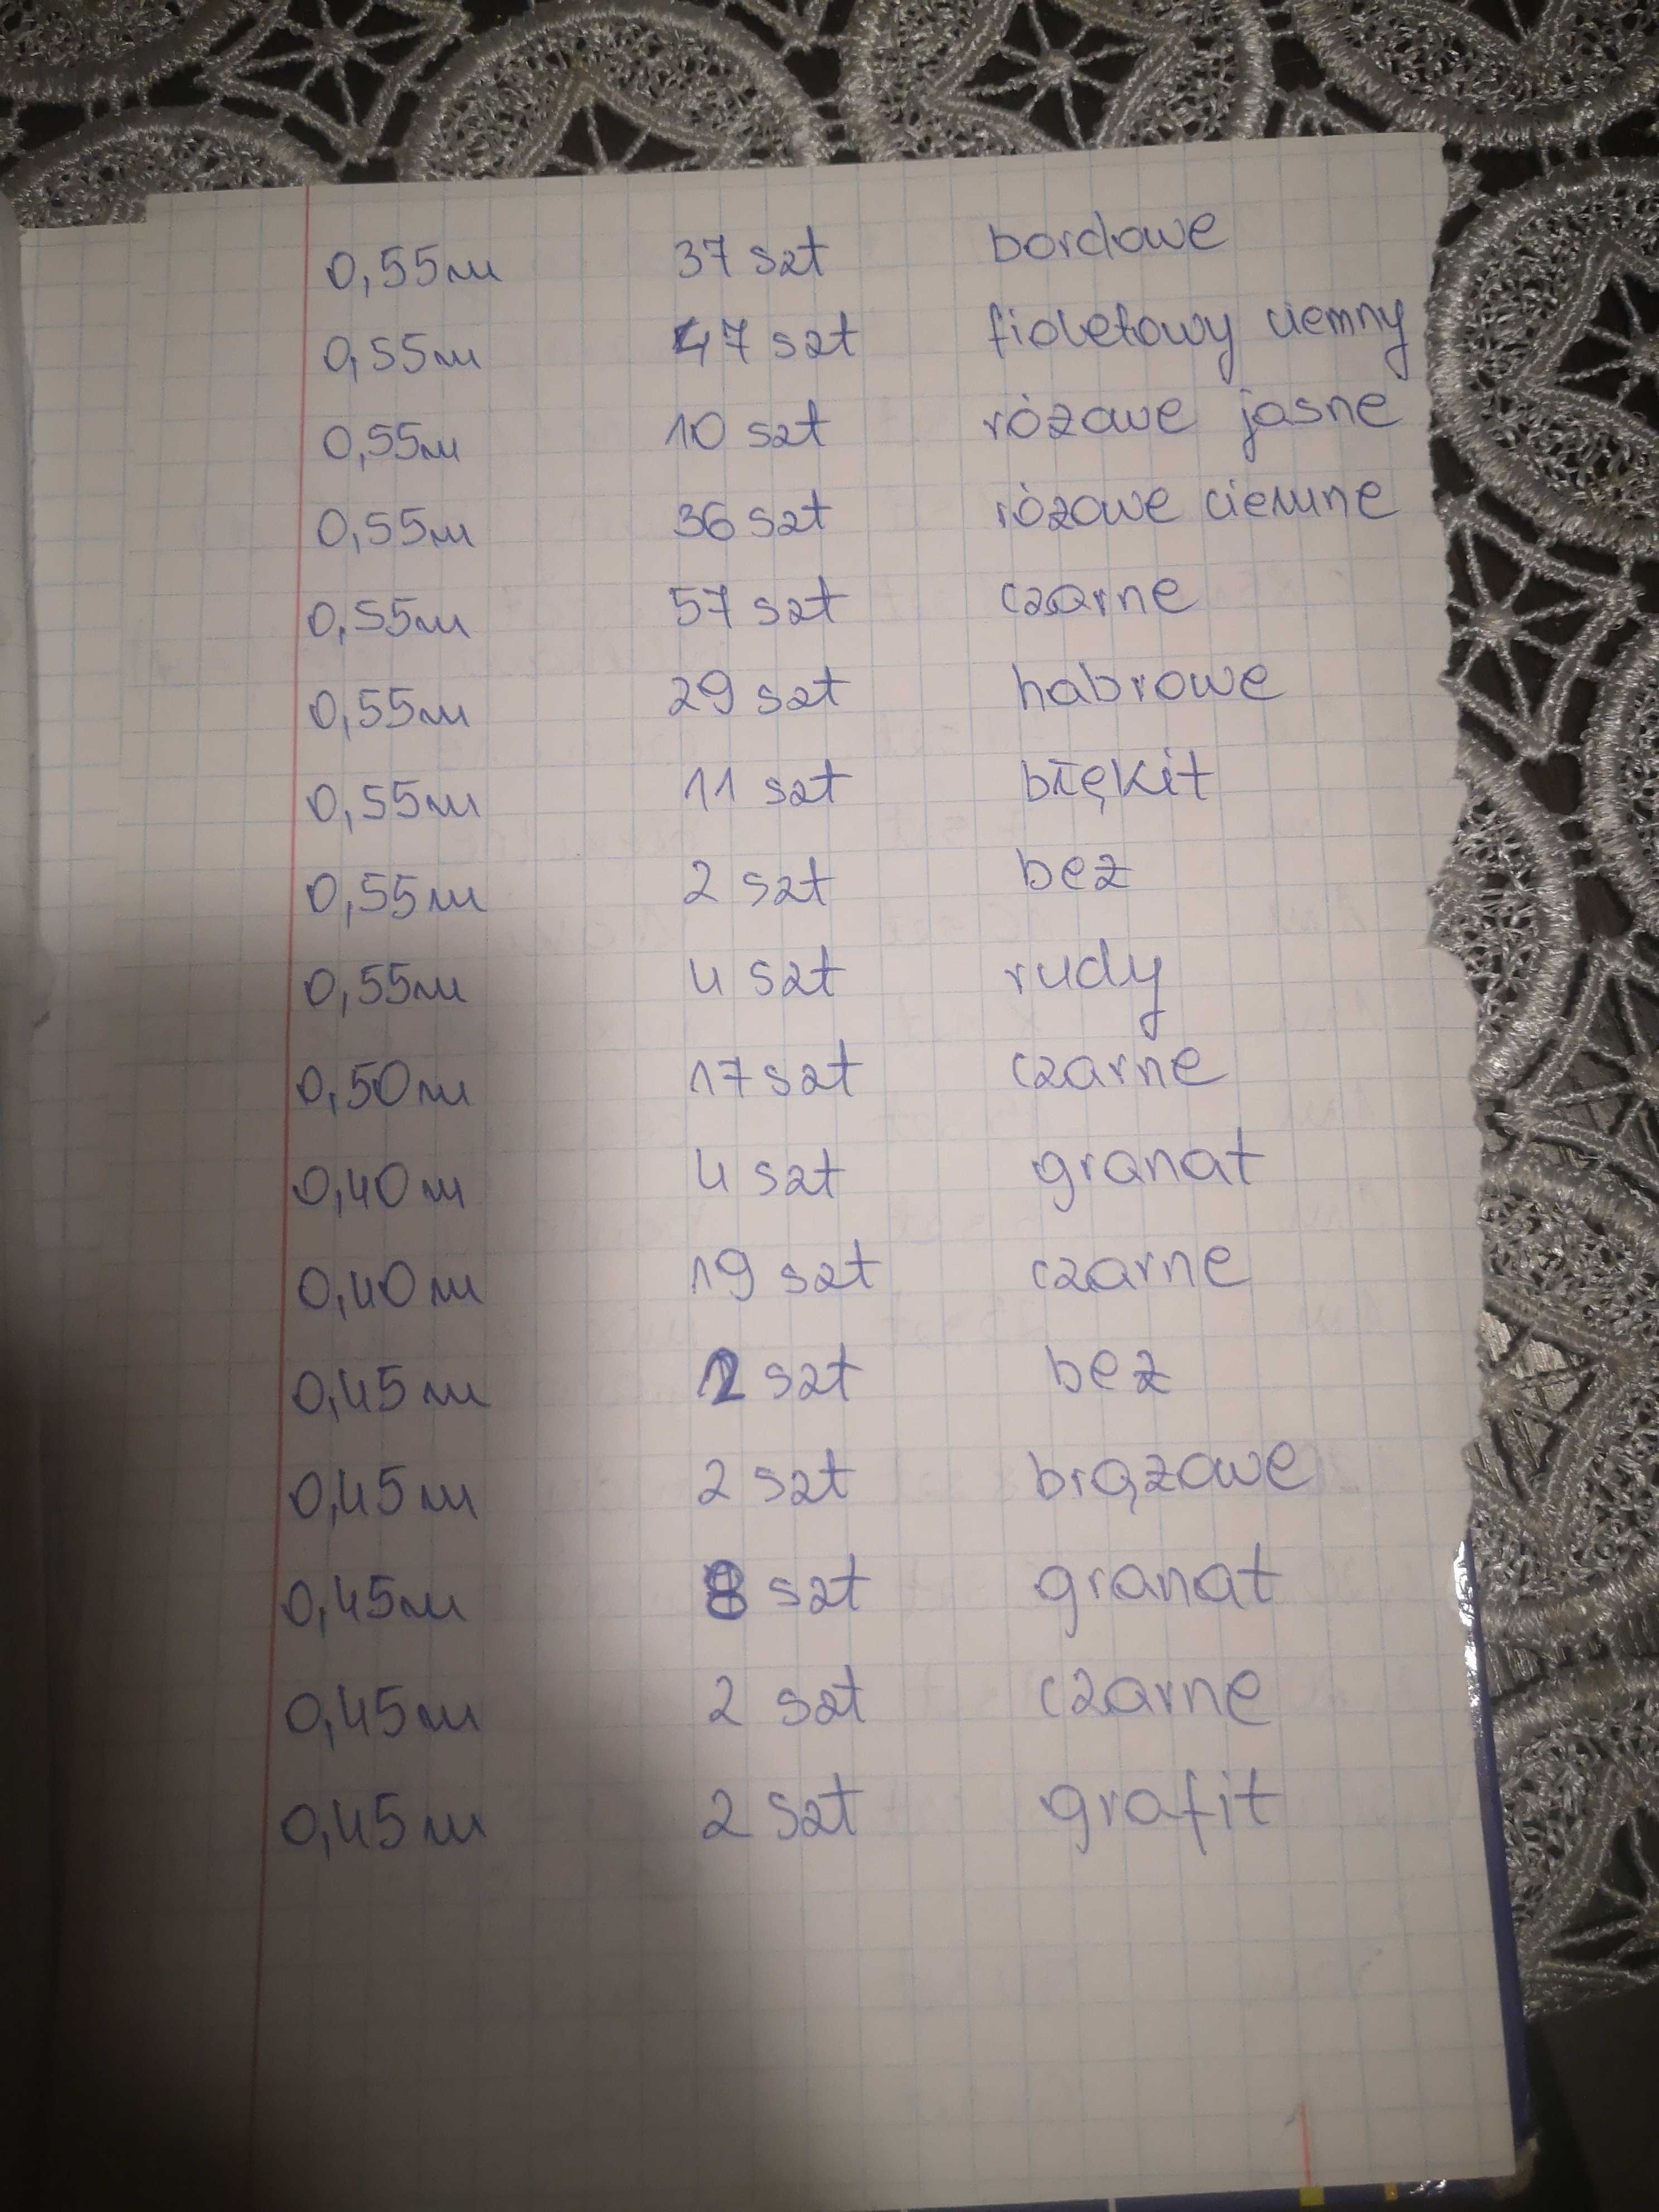 0,55m 37 szt bordowe
0,55m 47 szt fioletowy ciemny
0,55m 10 szt różowe jasne
0,55m 36 szt różowe ciemne
0,55m 57 szt czarne
0,55m 29 szt habrowe
0,55m 11 szt błękit
0,55m 2 szt beż
0,55m 4 szt rudy
0,50m 17 szt czarne
0,40m 4 szt granat
0,40m 19 szt czarne
0,45m 2 szt beż
0,45m 2 szt brązowe
0,45m 8 szt granat
0,45m 2 szt czarne
0,45m 2 szt grafit